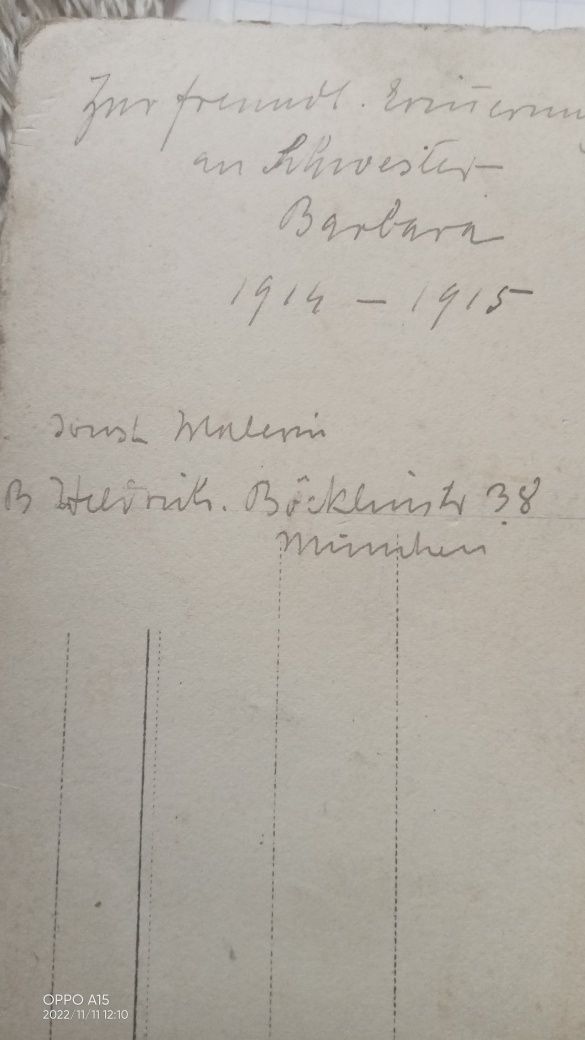 Zur freundl. Erinnerung
an Schwester
Barbara
1914 – 1915
sonst Malerin
B Böcklinstr 38
München
OPPO A15
2022/11/11 12:10